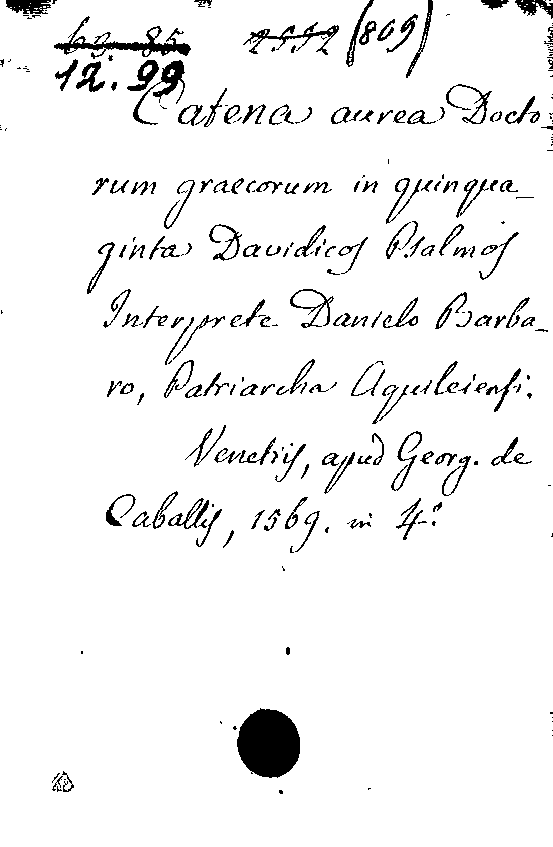 63. 85 2592 (809)
12. 99
Catena aurea Docto
rum graecorum in quinqua_
ginta Davidicos Psalmos
Interprete Daniele Barba_
ro, Patriarcha Aquileiensi.
Venetiis, apud Georg. de
Caballis, 1569. in 4.º